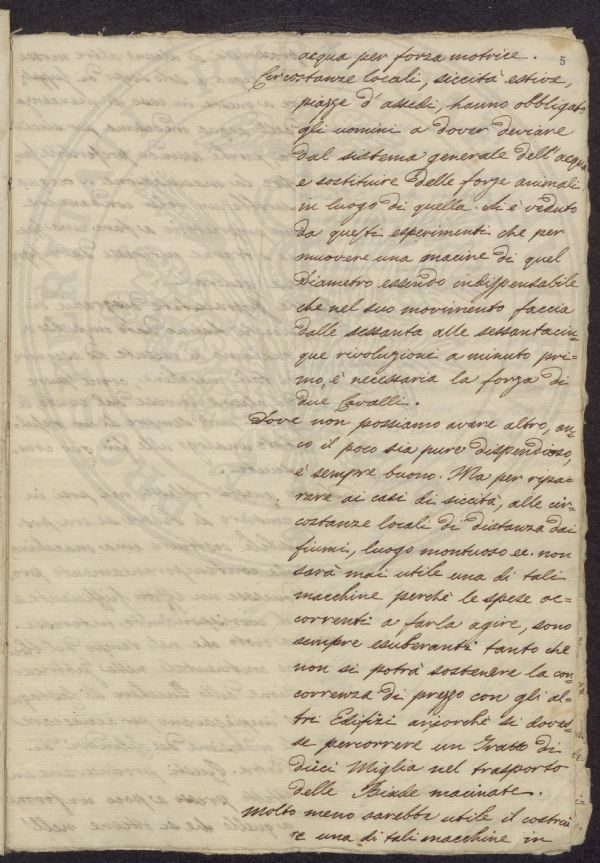 5
acqua per forza motrice.
Circostanze locali, siccità estive,
piazze d'assedi, hanno obbligato
gli uomini a dover deviare
dal sistema generale dell'acqua
e sostituire delle forze animali
in luogo di quella. Si è veduto
da questi esperimenti che per
muovere una macine di quel
Diametro essendo indispensabile
che nel suo movimento faccia
dalle sessanta alle sessantacin=
que rivoluzioni a minuto pri=
mo, è necessaria la forza di
due Cavalli.
Dove non possiamo avere altro, an=
co il poco sia pure dispendioso,
è sempre buono. Ma per ripa=
rare ai casi di siccità, alle cir=
costanze locali di distanza dai
fiumi, luogo montuoso ec. non
sarà mai utile una di tali
macchine perchè le spese oc=
correnti a farla agire, sono
sempre esuberanti tanto che
non si potrà sostenere la con
correnza di prezzo con gli al=
tri Edifizi anzorchè si doves=
se percorrere un Tratto di
dieci Miglia nel trasporto
delle Biade macinate.
Molto meno sarebbe utile il costrui
re una di tali macchine in